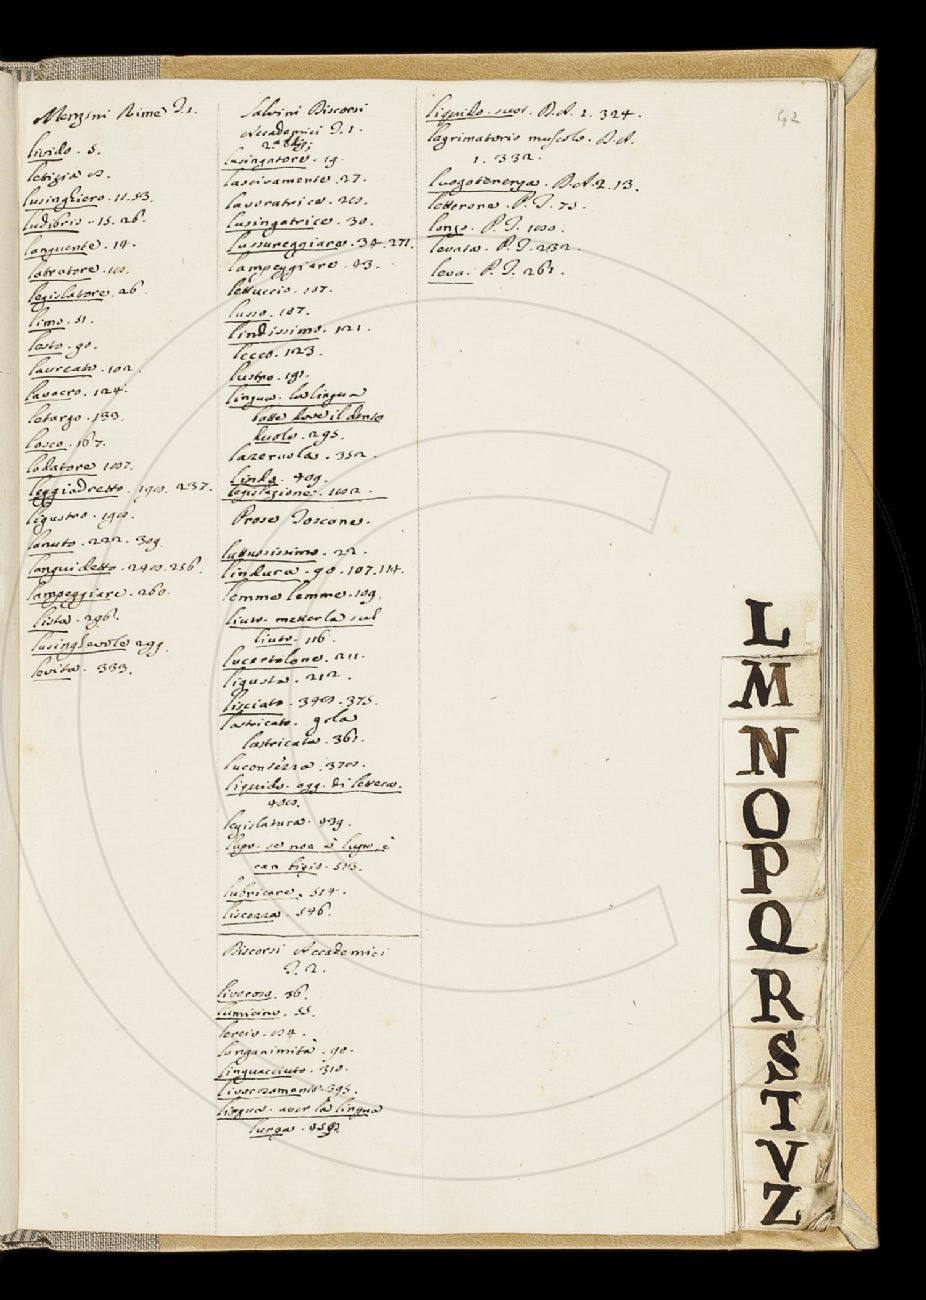 42
Menzini Rime T. 1.
livido. 5.
letizia
lusinghiero. 11. 53.
ludibrio. 15. 26.
languente. 14.
latratore.
legislatore. 26.
limo. 51.
lesto. 90.
laureato. 102.
lavacro. 124.
letargo. 133.
losco. 167.
lodatore
leggiadretto. 237.
ligustro.
lanuto. 222. 309.
languidetto. 256.
lampeggiare. 260.
lista. 296.
lusinghevole 299.
levita. 333.
Salvini Discorsi
Accademici T. 1.
lusingatore. 19.
lascivamente. 27.
lavoratrice.
lusingatrice. 30.
lussureggiare. 34. 271.
lampeggiare. 43.
lettuccio. 107.
lusso. 107.
lindissimo. 121.
lecco. 123.
lustro.
lingua. la lingua
batte dove il dente
duole. 295.
lazeruola. 352.
lindo. 409.
legislazione.
Prose Toscane.
luttuosissimo. 22.
lindura. 90. 107. 114.
lemme lemme. 109.
liuto. metter la sul
liuto. 116.
lucertolone. 211.
ligusta. 212.
lisciato. 375.
lastricato. gola
lastricata. 361.
lucentezza.
liquido. agg. di lettera.
legislatura. 439.
lupo. se non è lupo, è
can bigio. 513.
lubricare. 514.
liscezza. 546.
Discorsi Accademici
T. 2.
livoroso. 36.
lumicino. 55.
lercio.
longanimità. 90.
linguacciuto. 310.
livorosamente. 395.
lingua. aver la lingua
lunga.
liquido. sust. D. A. 1. 324.
lagrimatorio muscolo. D. A.
1. 332.
luogotenenza. D. A. 2. 13.
letterone. P. T. 75.
longo. P. T. 100.
levata. P. T. 232.
leva. P. T. 261.
L
M
N
O
P
Q
R
S
T
V
Z